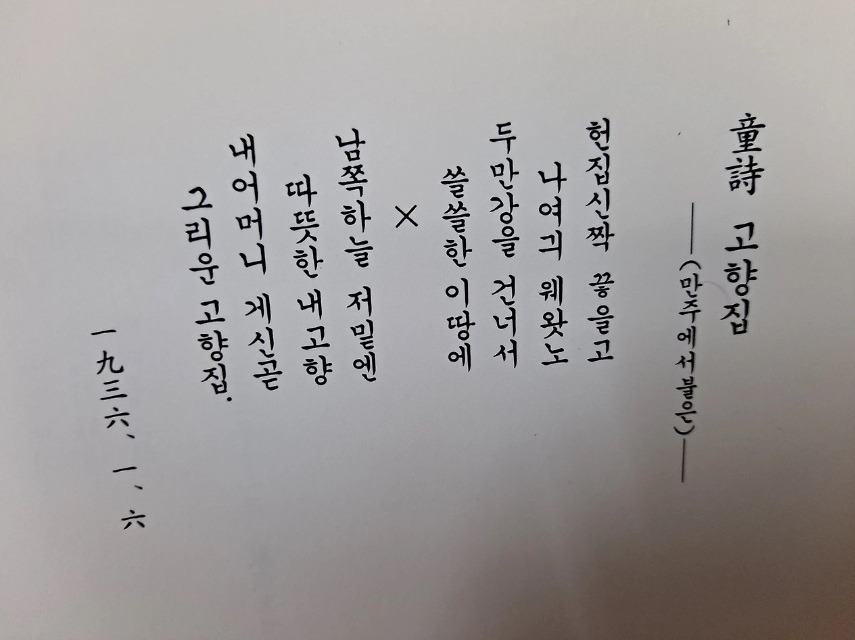 童詩 고향집
——(만주에서불은)——
헌집신짝 끟을고
나여긔 웨왓노
두만강을 건너서
쓸쓸한 이땅에
×
남쪽하늘 저밑엔
따뜻한 내고향
내어머니 게신곧
그리운 고향집.
一九三六、一、六